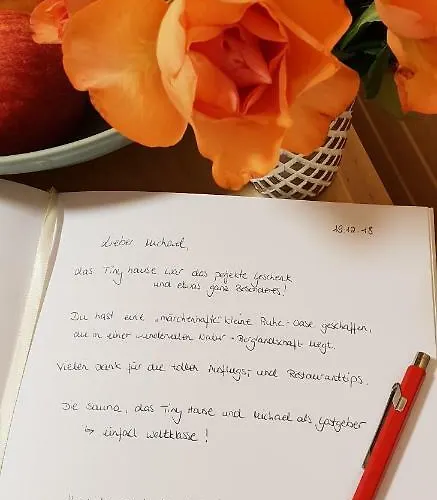 19.12.18
Lieber Michael,
das Tiny house war das perfekte Geschenk
und etwas ganz Besonderes!
Du hast eine "märchenhafte" kleine Ruhe-Oase geschaffen,
die in einer wundervollen Natur + Berglandschaft liegt.
Vielen Dank für die tollen Ausflugs- und Restauranttips.
Die Sauna, das Tiny House und Michael als Gastgeber
↳ einfach weltklasse!